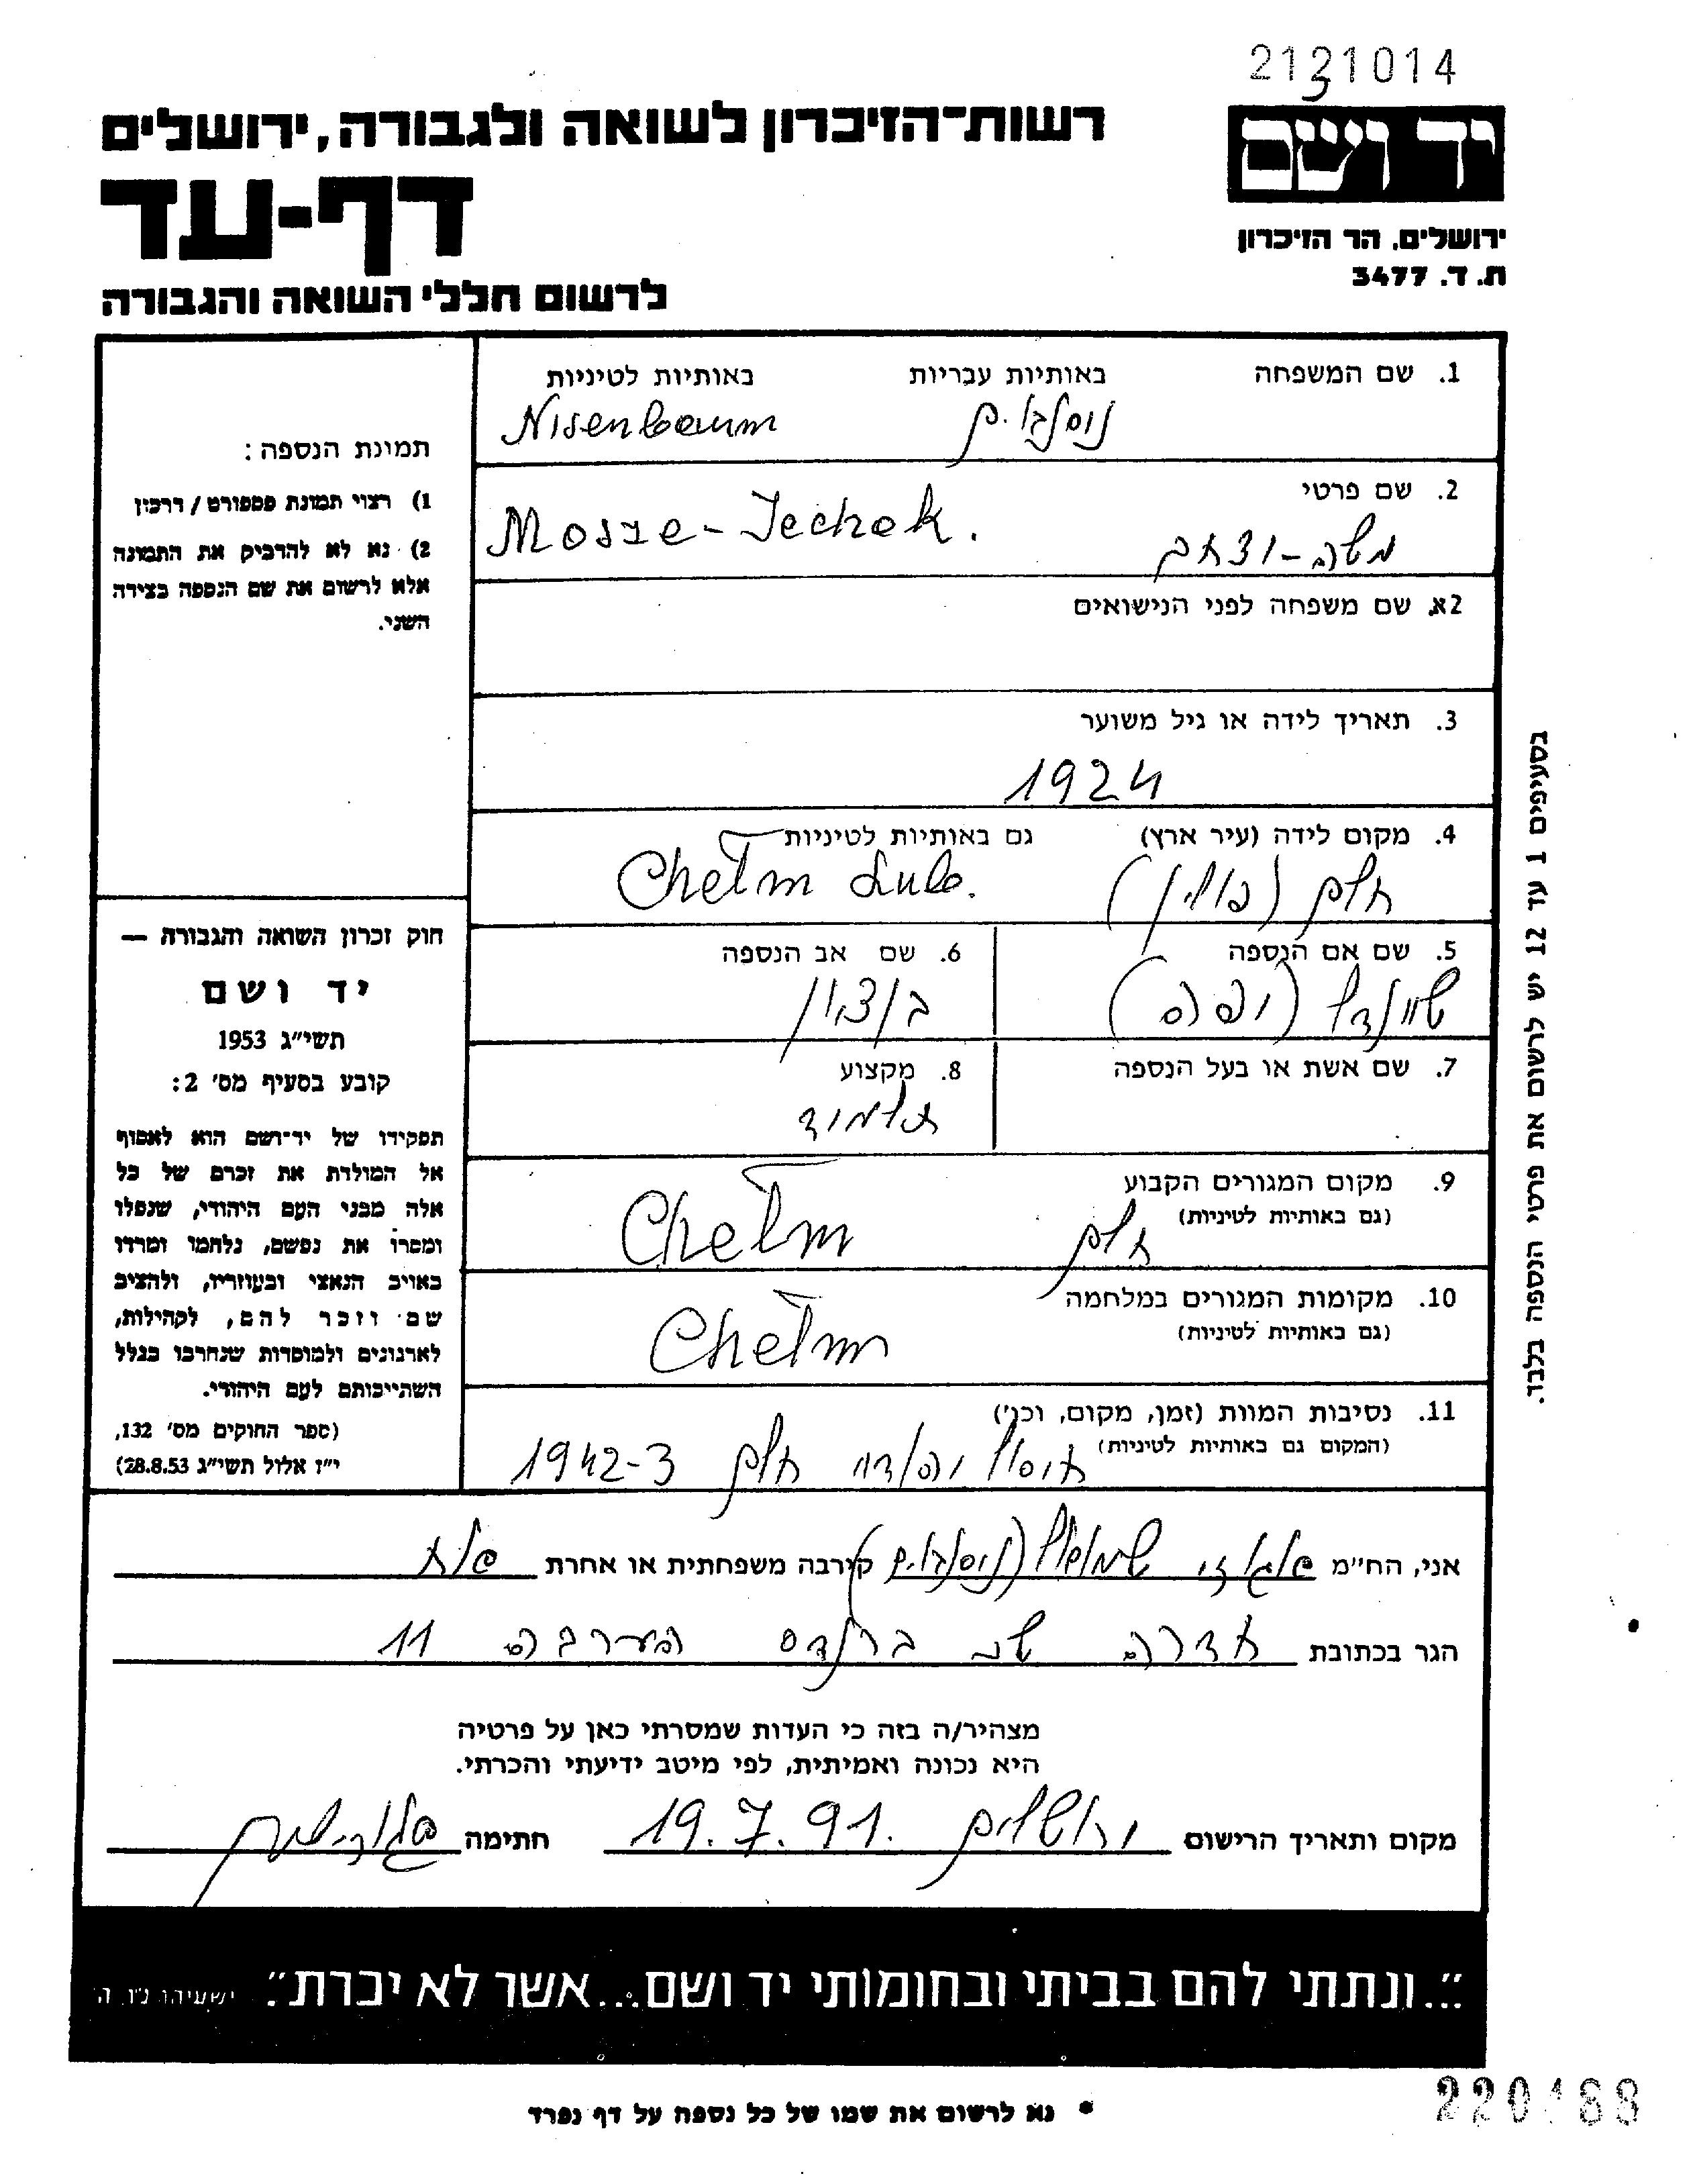 2121014
3
יד ושם
ירושלים, הר הזיכרון
ת. ד. 3477
רשות־הזיכרון לשואה ולגבורה, ירושלים
דף-עד
לרשום חללי השואה והגבורה
1. שם המשפחה באותיות עבריות באותיות לטיניות
Nisenbaum
2. שם פרטי
משה-יצחק Mosze-Icchok.
2א. שם משפחה לפני הנישואים
3. תאריך לידה או גיל משוער
1924
4. מקום לידה (עיר ארץ) גם באותיות לטיניות
חלם (פולין) Chełm Lub.
5. שם אם הנספה 6. שם אב הנספה
שיינדל (יפה) בן ציון
7. שם אשת או בעל הנספה 8. מקצוע
תלמיד
9. מקום המגורים הקבוע
(גם באותיות לטיניות)
חלם Chełm
10. מקומות המגורים במלחמה
(גם באותיות לטיניות)
Chełm
11. נסיבות המוות (זמן, מקום, וכו׳)
(המקום גם באותיות לטיניות)
חיסול יהודי חלם 1942-3
תמונת הנספה:
1) רצוי תמונת פספורט / דרכון
2) נא לא להדביק את התמונה
אלא לרשום את שם הנספה בצידה
השני.
חוק זכרון השואה והגבורה —
יד ושם
תשי״ג 1953
קובע בסעיף מס׳ 2:
תפקידו של יד־ושם הוא לאסוף
אל המולדת את זכרם של כל
אלה מבני העם היהודי, שנפלו
ומסרו את נפשם, נלחמו ומרדו
באויב הנאצי ובעוזריו, ולהציב
שם וזכר להם, לקהילות,
לארגונים ולמוסדות שנחרבו בגלל
השתייכותם לעם היהודי.
(ספר החוקים מס׳ 132,
י״ז אלול תשי״ג 28.8.53)
בסעיפים 1 עד 12 יש לרשום את פרטי הנספה בלבד.
אני, הח״מ קירבה משפחתית או אחרת אח
הגר בכתובת חדרה שכ ברנדס הערבה 11
מצהיר/ה בזה כי העדות שמסרתי כאן על פרטיה
היא נכונה ואמיתית, לפי מיטב ידיעתי והכרתי.
מקום ותאריך הרישום ירושלים 19.7.91. חתימה
״...ונתתי להם בביתי ובחומותי יד ושם...אשר לא יכרת״. ישעיהו נ״ו, ה׳
* נא לרשום את שמו של כל נספה על דף נפרד
220188